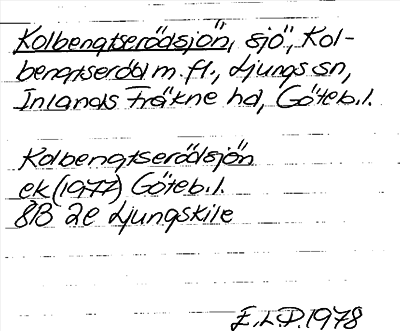 Kolbengtserödsjön, sjö, Kol-
bengtseröd m. fl., Ljungs sn,
Inlands Fräkne hd, Göteb. l.
Kolbengtserödsjön
ek (1977) Göteb. l.
8B 2e Ljungskile
E.L.P. 1978